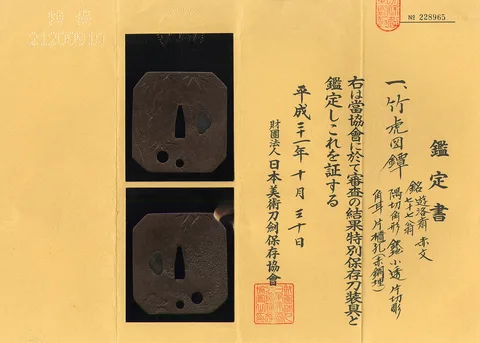 № 228965
鑑定書
一、竹虎図鐔
銘 遊洛斎赤文
七十七翁
隅切角形 鉄 小透 片切彫
角耳 片櫃孔(赤銅埋)
右は當協會に於て審査の結果特別保存刀装具と
鑑定しこれを証する
平成二十一年十月三十日
財團法人 日本美術刀劔保存協會